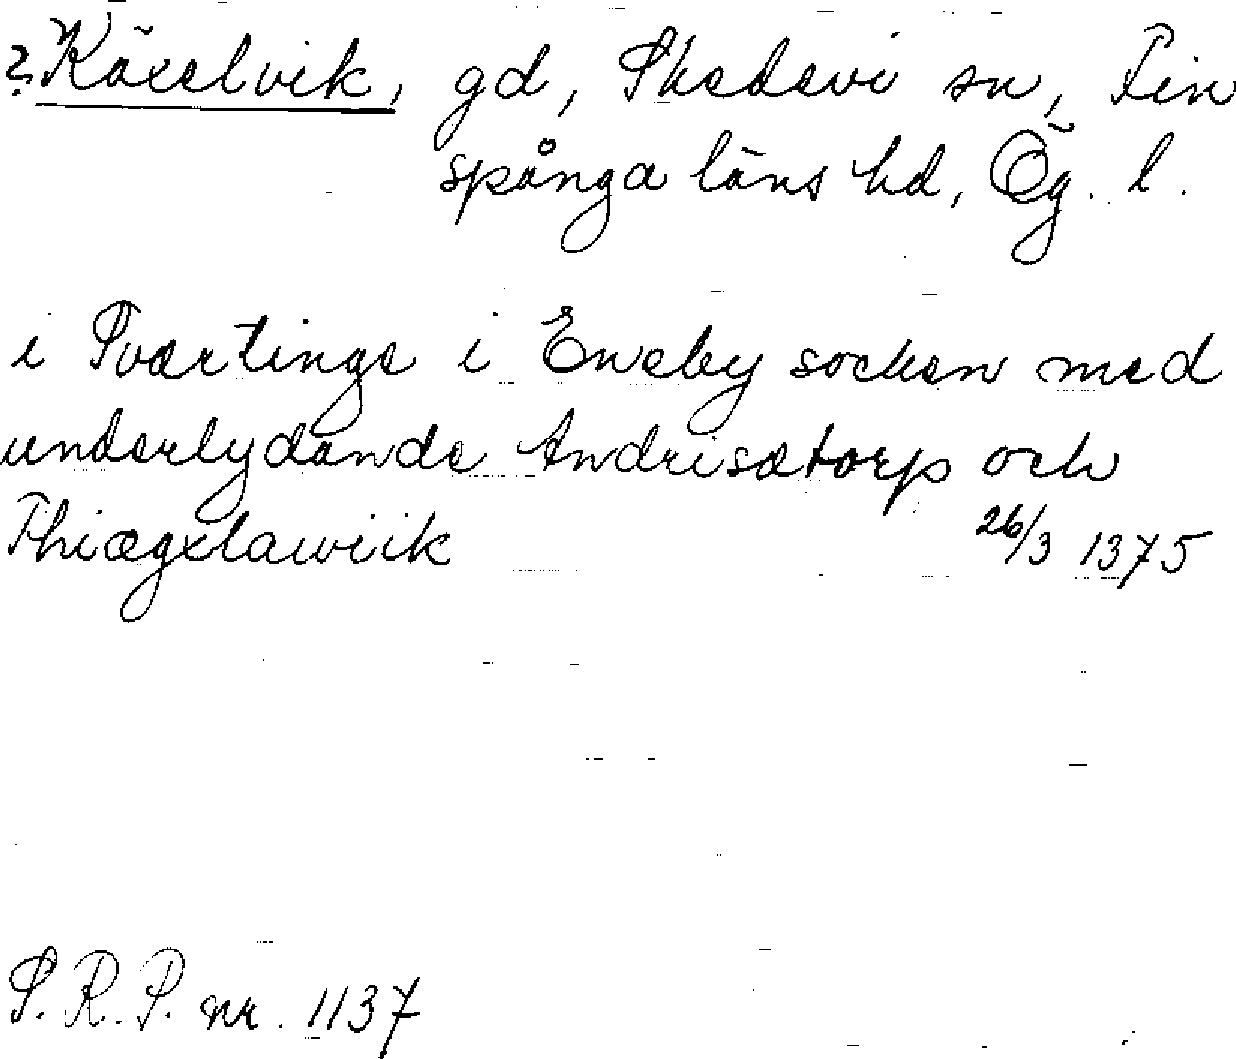 ? Käxelvik, gd, Skedevi sn, Fin
spånga läns hd, Ög. l.
i Swærtinge i Eneby socken med
underlydande Andrisætorp och
Thiægxlawiik 26/3 1375
S. R. P. nr. 1137